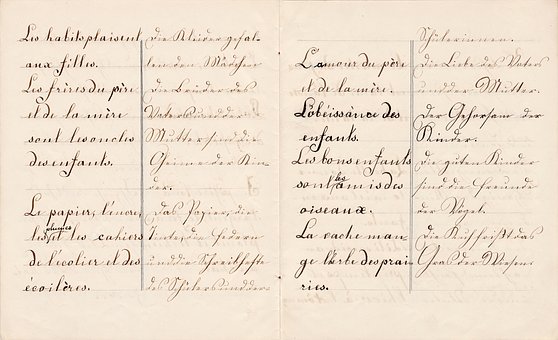 Les habits plaisent
aux filles.
Les frères du père
et de la mère
sont les oncles
des enfants.
Le papier, l'encre,
plumes
les et les cahiers
de l'écolier et des
écolières.
Die Kleider gefal-
len den Mädchen
Die Brüder des
Vaters und der
Mutter sind die
Oheime der Kin-
der.
Das Papier, die
Tinte, die Federn
und die Schreibhefte
des Schülers und der
L'amour du père
et de la mère.
L'obéissance des
enfants.
Les bons enfants
les
sont amis des
oiseaux.
La vache man-
ge l'herbe des prai-
ries.
Schülerinnen.
Die Liebe des Vaters
und der Mutter.
Der Gehorsam der
Kinder.
Die guten Kinder
sind die Freunde
der Vögel.
Die Kuh frißt das
Gras der Wiesen.